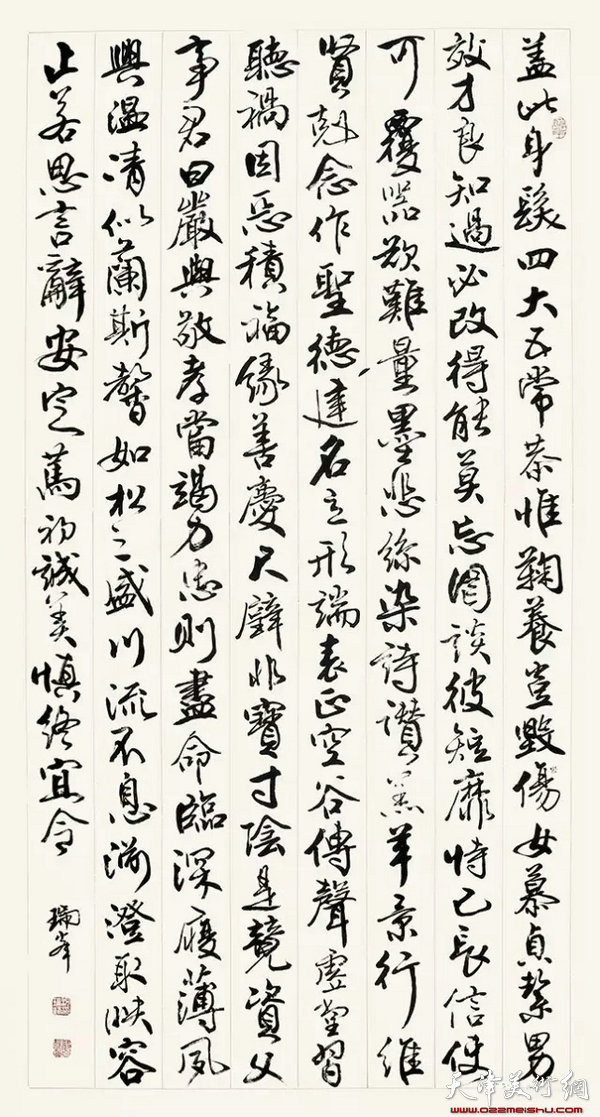 盖此身髮四大五常恭惟鞠養豈毀傷女慕貞絜男
效才良知過必改得能莫忘罔談彼短靡恃己長信使
可覆器欲難量墨悲絲染詩讚羔羊景行維
賢剋念作聖德建名立形端表正空谷傳聲虛堂習
聽禍因惡積福緣善慶尺璧非寶寸陰是競資父
事君曰嚴與敬孝當竭力忠則盡命臨深履薄夙
興溫凊似蘭斯馨如松之盛川流不息淵澄取映容
止若思言辭安定篤初誠美慎終宜令
瑞峯
天津美术网
www.022meishu.com